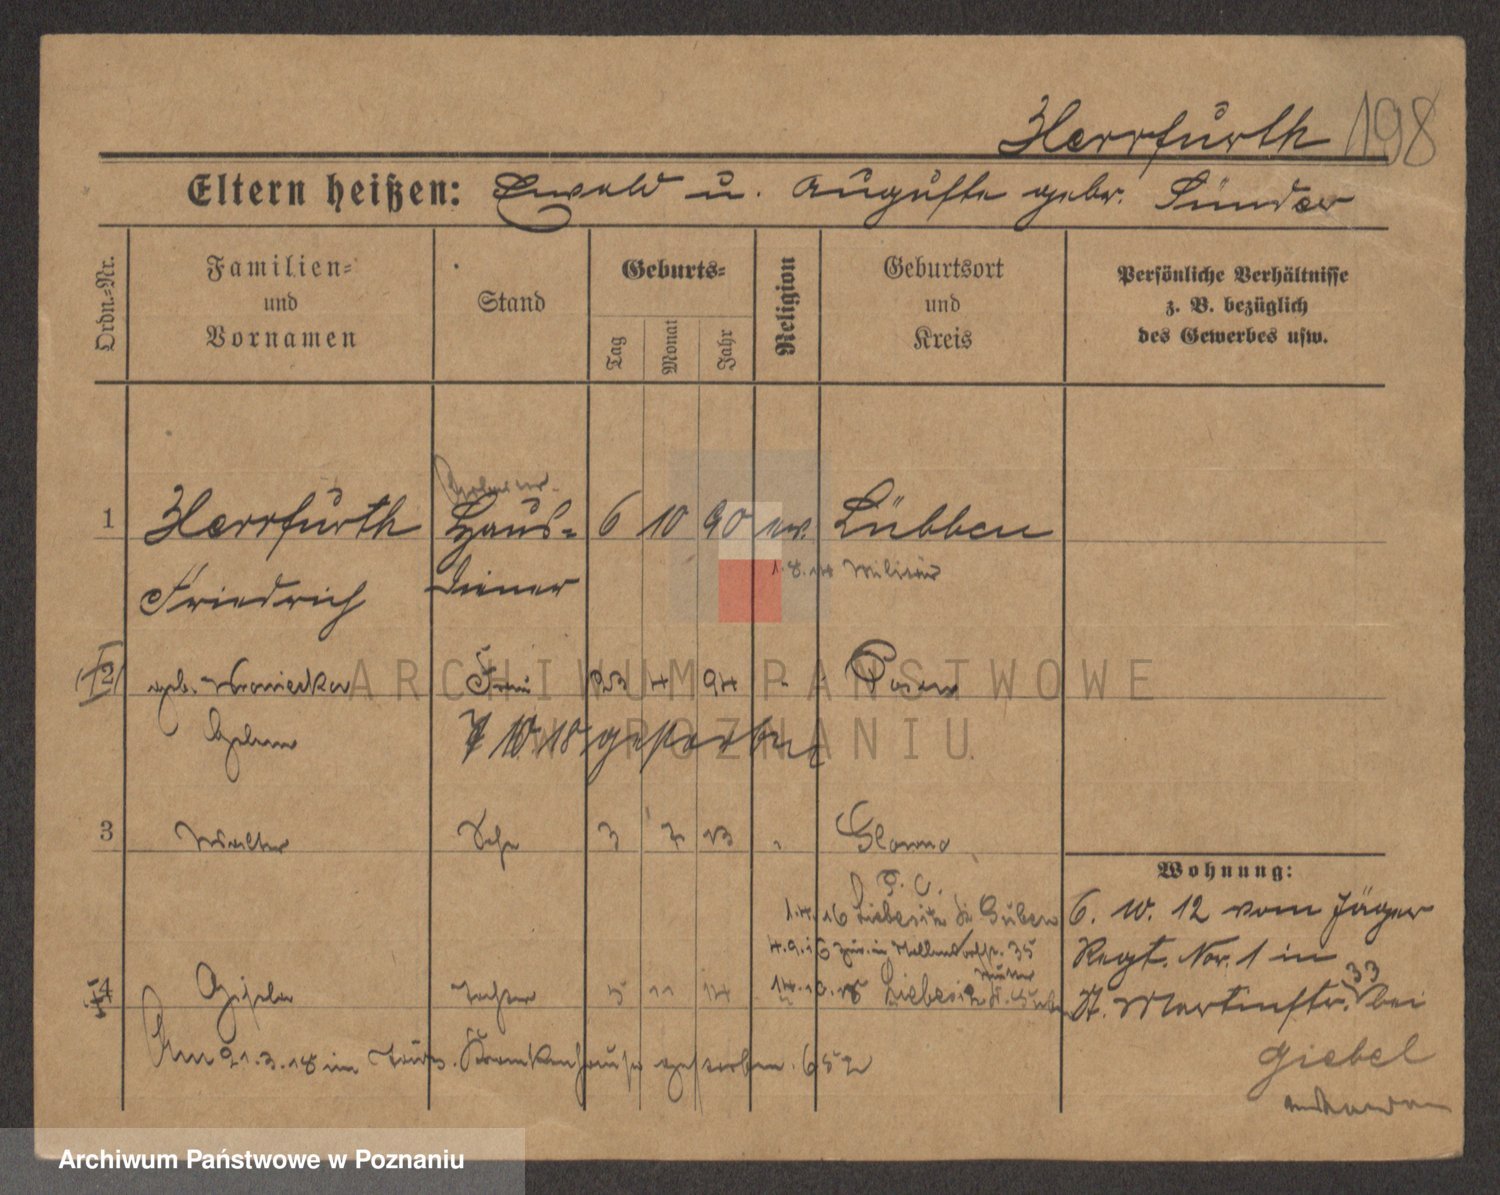 Herrfurth 198
Eltern heißen: Ewald u. Auguste gebr. Sünder
Ordn.-Nr.
Familien-
und
Vornamen
Stand
Geburts-
Tag
Monat
Jahr
Religion
Geburtsort
und
Kreis
Persönliche Verhältnisse
z. B. bezüglich
des Gewerbes usw.
1 Herrfurth Haus- 6 10 90 ev. Lübben
Friedrich diener 1.8.14 Militär
2 geb. Frau 23 4 94 " Posen
10.18 gestorben
3 Walter Sohn 3 7 13 "
Wohnung:
1.4.16 Liebesitz Kr. Guben
6. 10. 12 vom Jäger
4.9.16 zur. in 35
Regt. Nr. 1 in
4 Gisela Tochter 5 11 14 Liebesitz Kr. Guben
St. Martinstr. 33 bei
Am 21.3.18 im Krankenhause gestorben. 652
Giebel
ARCHIWUM PAŃSTWOWE
W POZNANIU
Archiwum Państwowe w Poznaniu